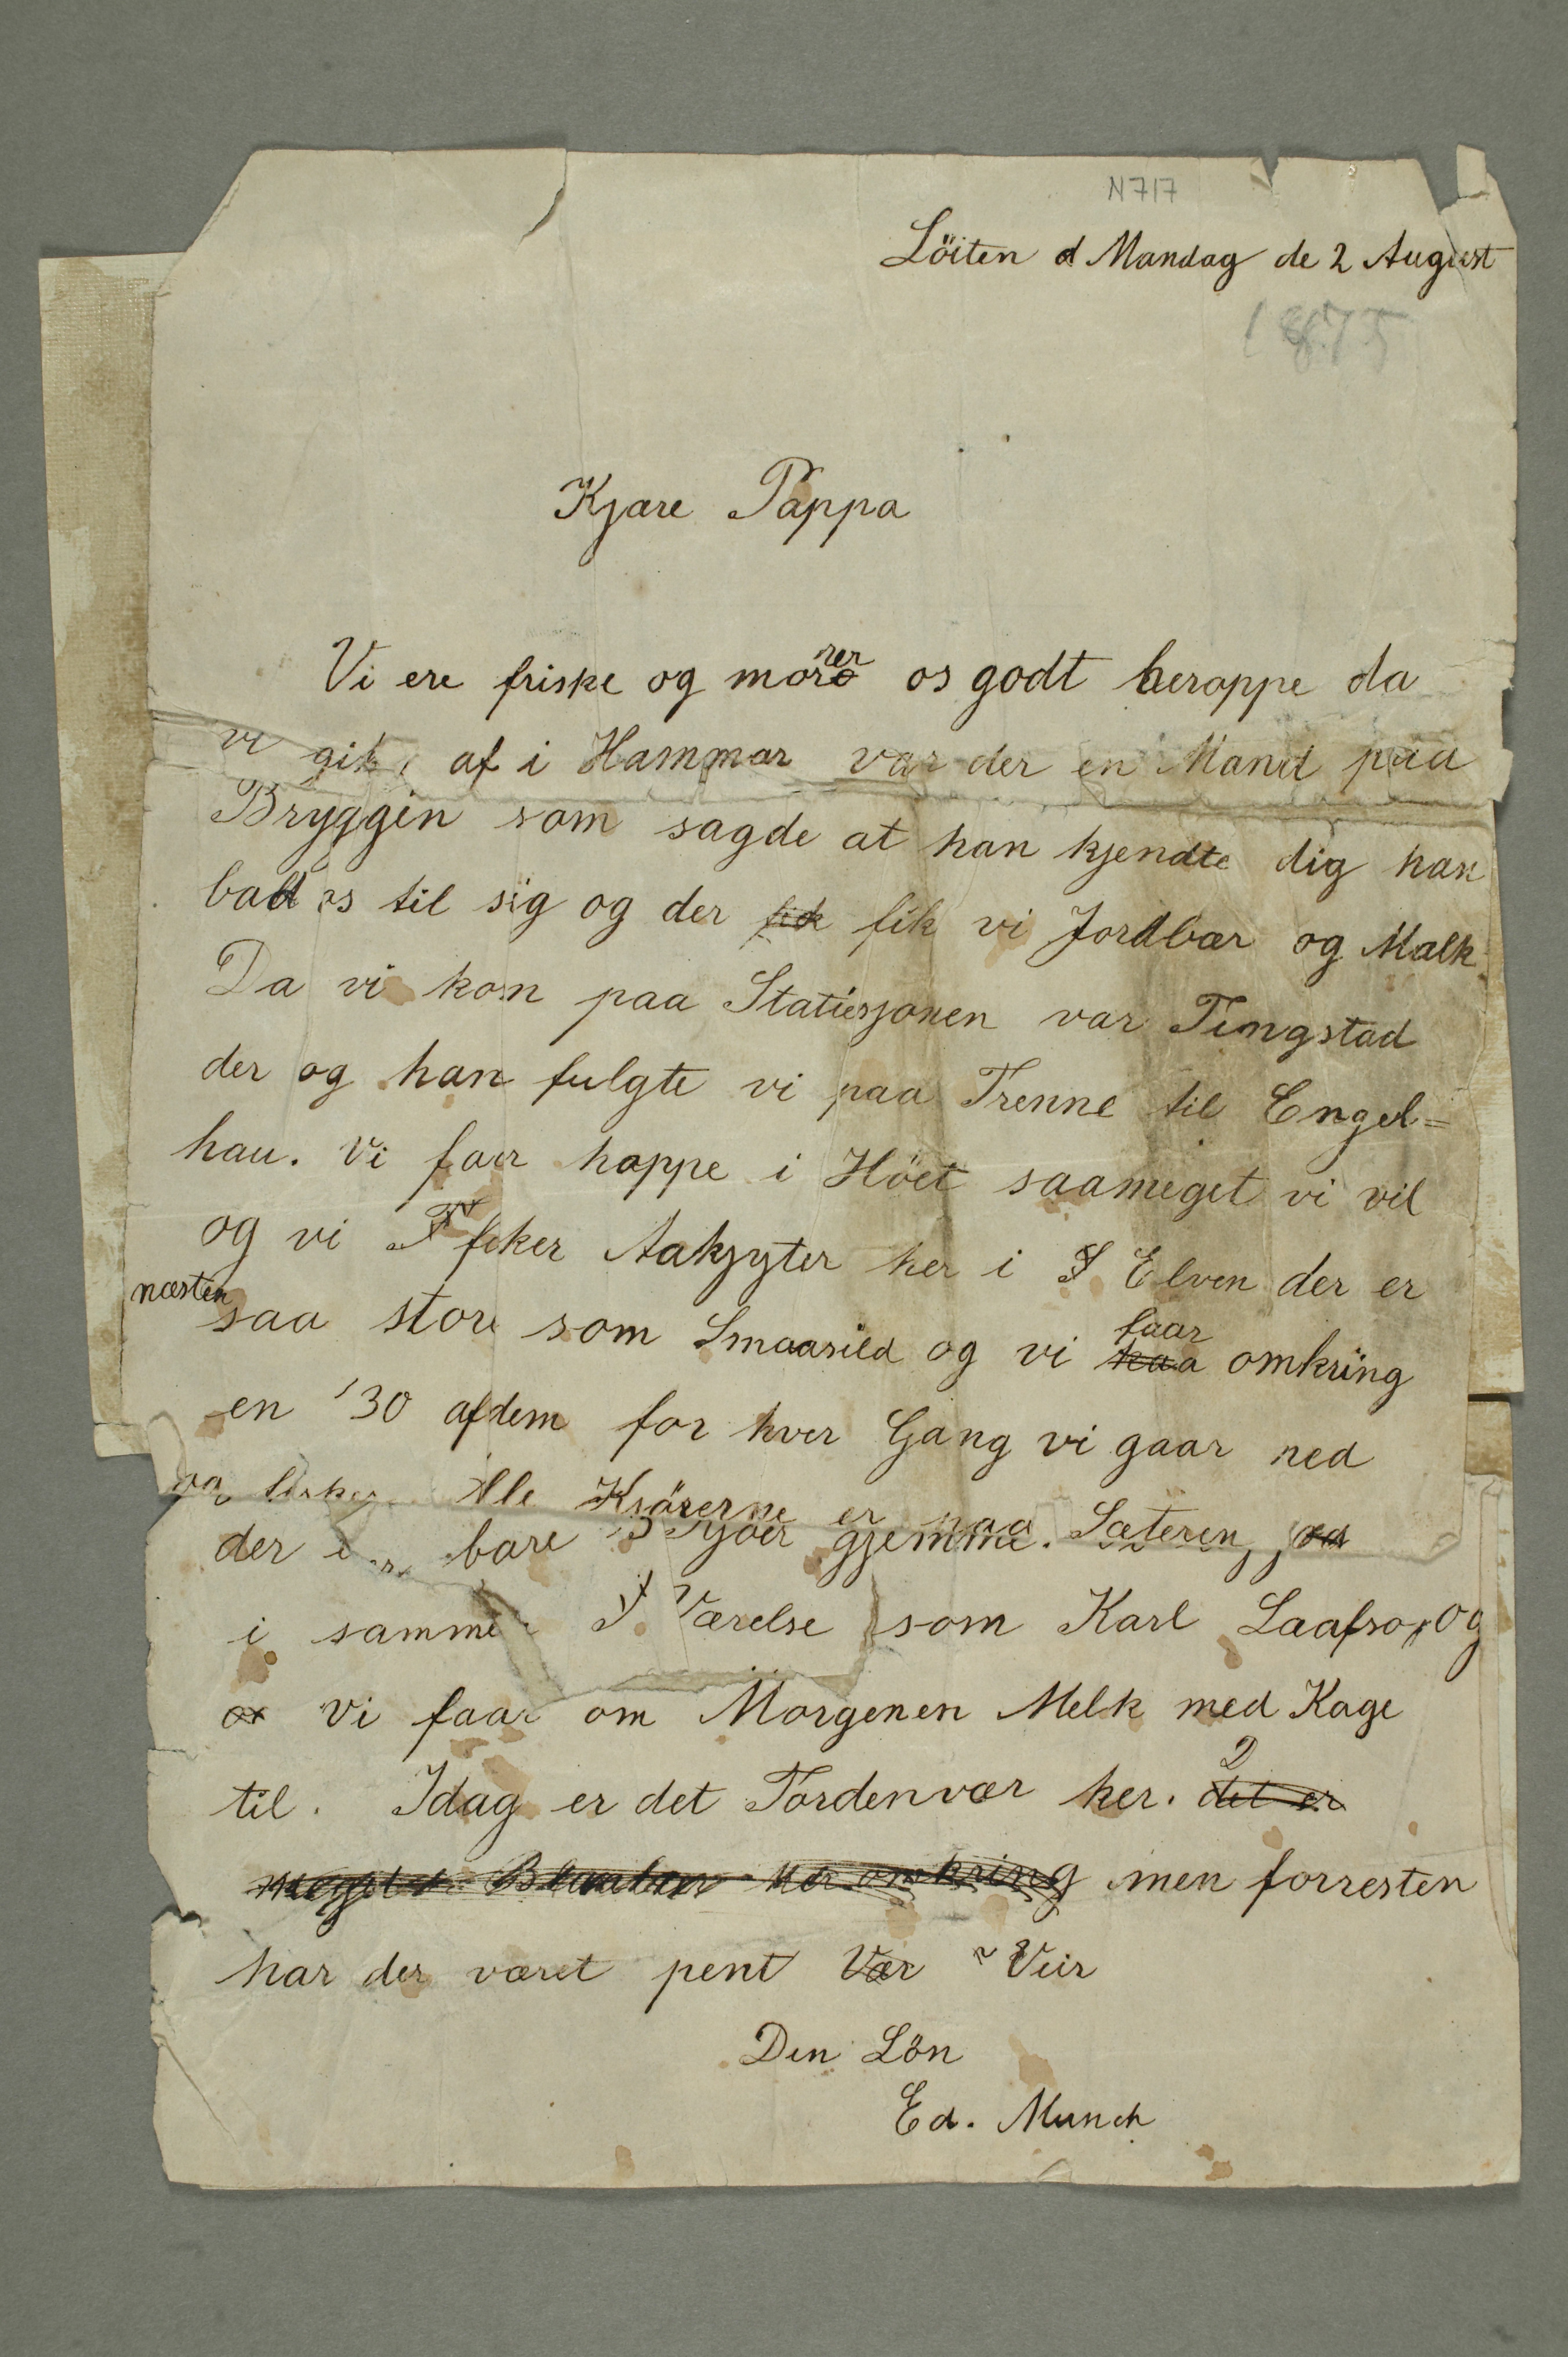 N 717
Löiten d Mandag de 2 August
1875
Kjære Pappa
Vi ere friske og morer os godt heroppe da
vi gik af i Hammar var der en Mand paa
Bryggen som sagde at han kjendte dig han
bad os til sig og der fik fik vi Jordbær og Mælk
Da vi kom paa Statiesjonen var Tingstad
der og han fulgte vi paa Trenne til Engel=
hau. Vi faar hoppe i Höet saameget vi vil
og vi F fisker Aakjyter her i Elven der er
næsten saa store som Smaasild og vi faar omkring
en 30 afdem for hver Gang vi gaar ned
og fisker. Alle Kjörerne er paa Sæteren,
der er bare 3 Kjöer gjemme.
i samme Værelse som Karl Laafso, og
vi faar om Morgenen Melk med Kage
til. Idag er det Tordenvær her. det er
meget Blaabær her omkring men forresten
har der været pent Vær Veir
Din Sön
Ed. Munch